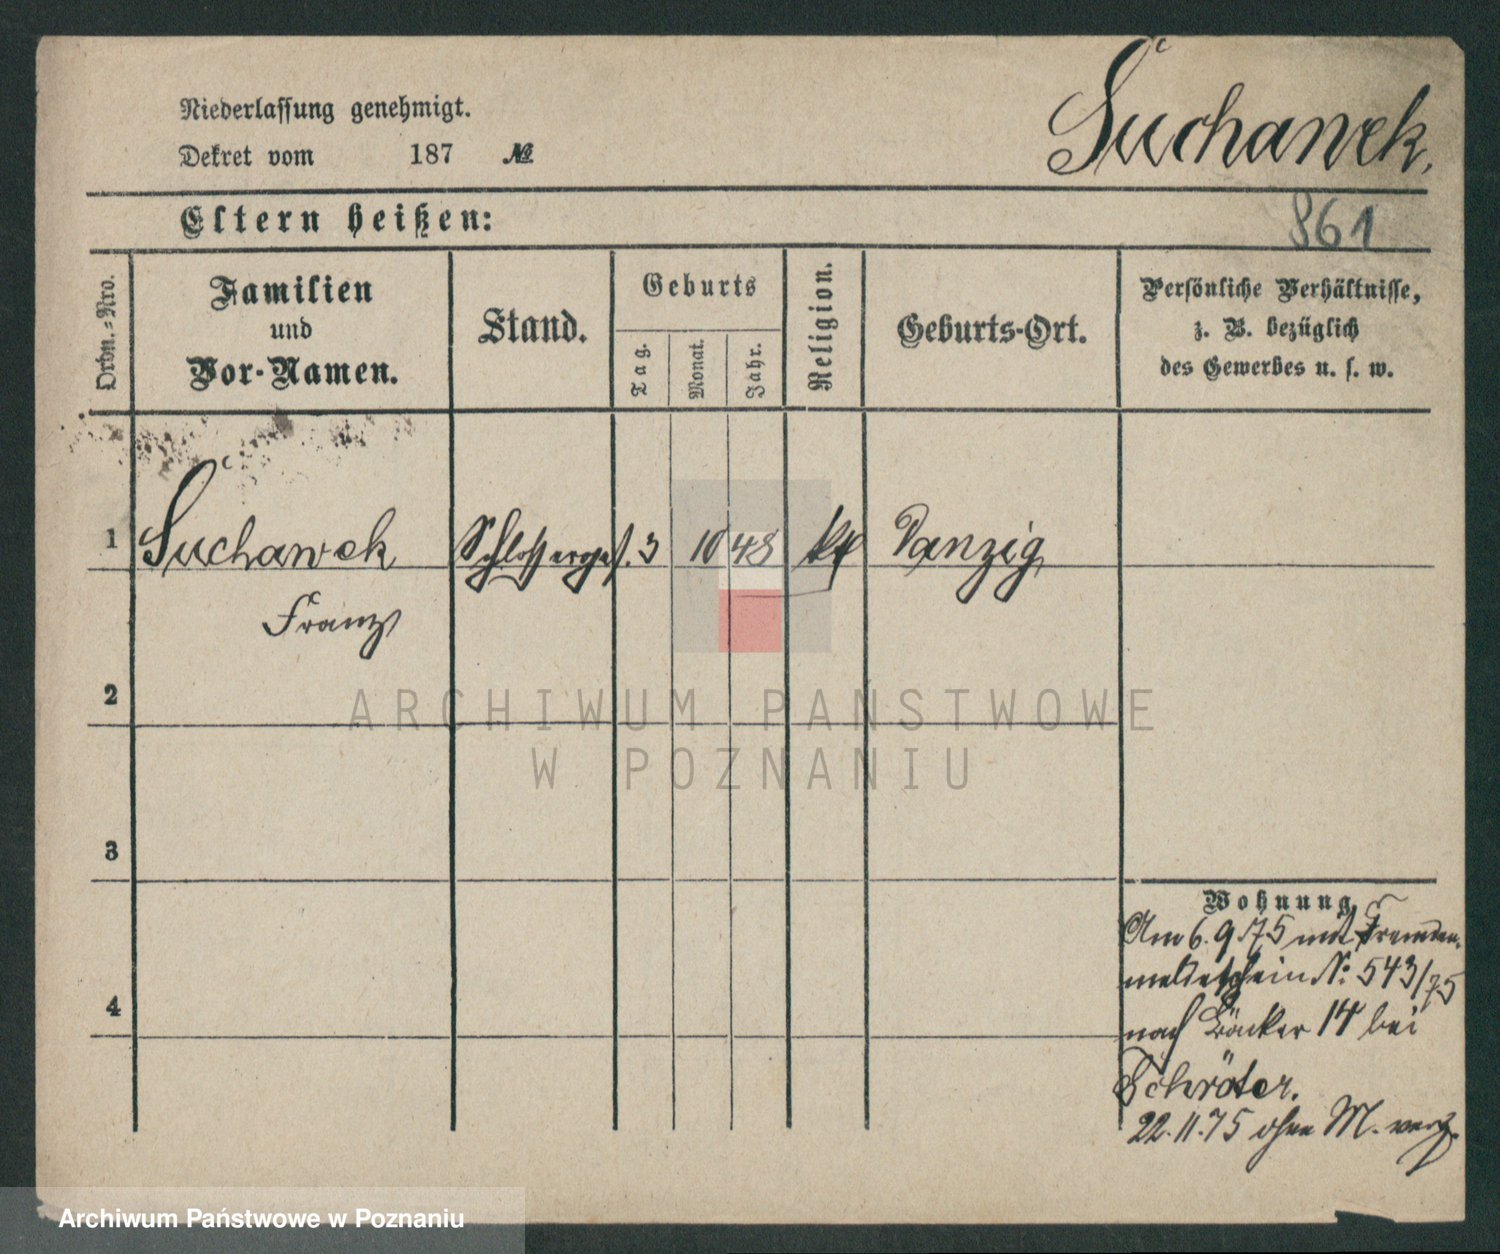 Niederlassung genehmigt.
Dekret vom 187 №
Suchanek.
Eltern heißen:
861
Ordn.=Nro.
Familien
und
Vor-Namen.
Stand.
Geburts
Tag.
Monat.
Jahr.
Religion.
Geburts-Ort.
Persönliche Verhältnisse,
z. B. bezüglich
des Gewerbes u. s. w.
1 Suchanek Schlosserges. 3 10 48 kt Danzig
Franz
2
ARCHIWUM PAŃSTWOWE
W POZNANIU
3
Wohnung
Am 6. 9 75 mit Fremden-
meldeschein N: 543/75
4
nach Bäcker 14 bei
Schröter.
22.11.75 ohne M. verz.
Archiwum Państwowe w Poznaniu